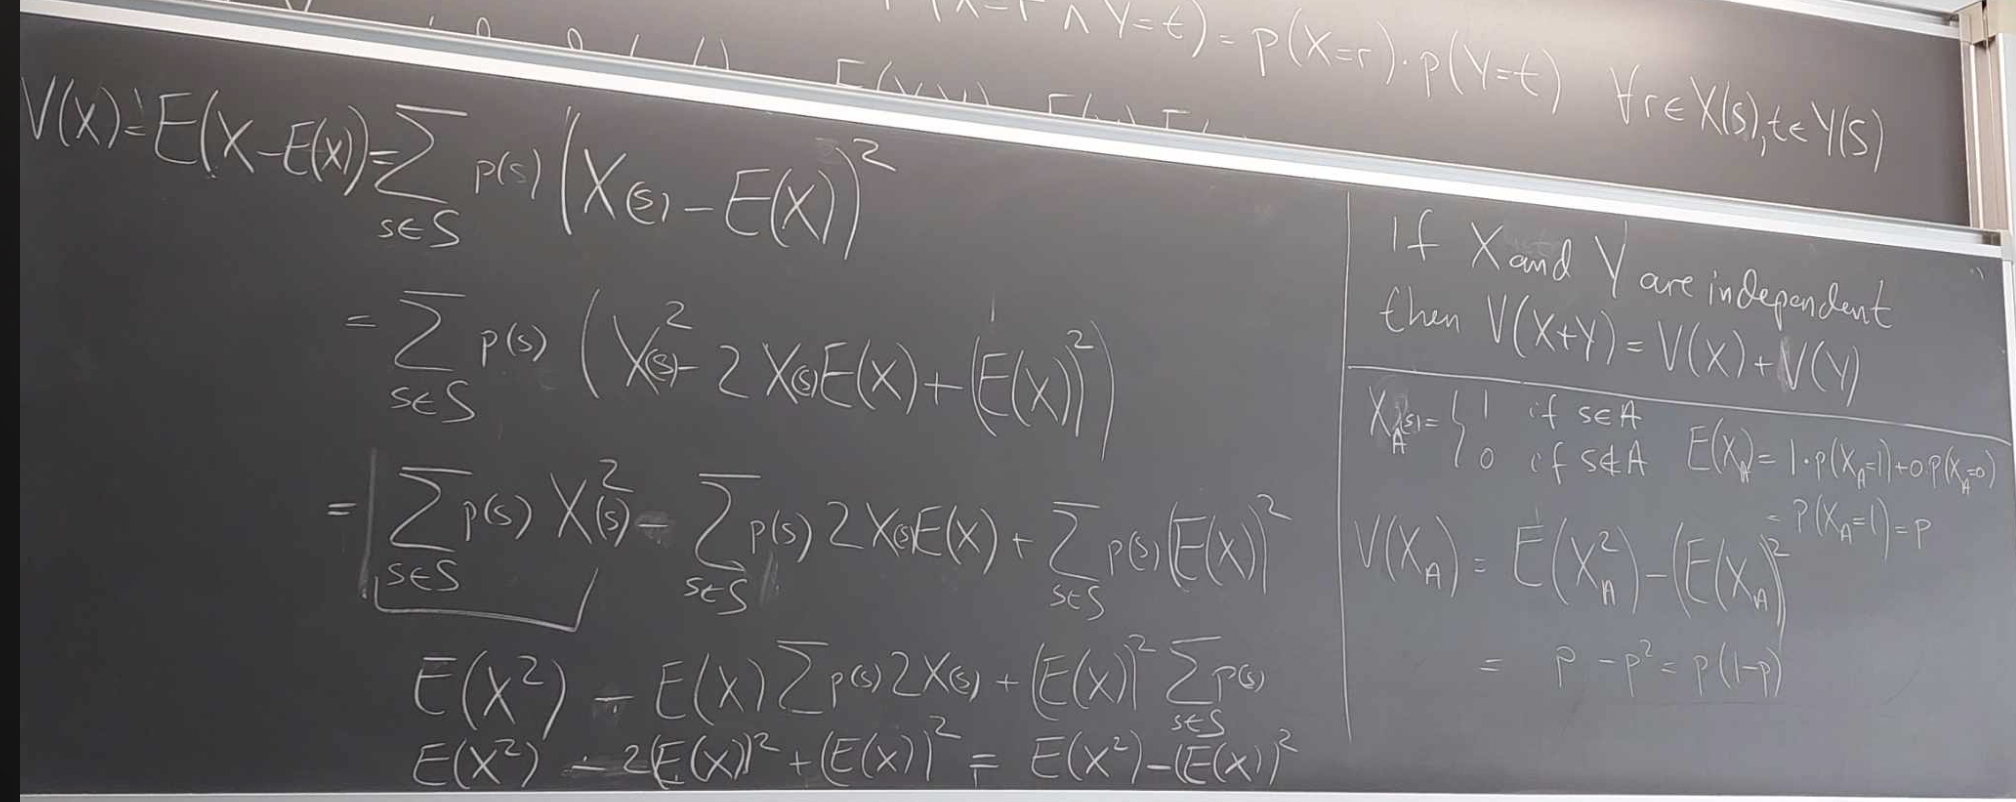 ∧ Y=t) = p(X=r)·p(Y=t) ∀r∈X(S), t∈Y(S)
V(X) = E(X-E(X)) = ∑_{s∈S} p(s) (X(s) - E(X))²
= ∑_{s∈S} p(s) (X²(s) - 2X(s)E(X) + (E(X))²)
= ∑_{s∈S} p(s) X²(s) - ∑_{s∈S} p(s) 2X(s)E(X) + ∑_{s∈S} p(s)(E(X))²
E(X²) - E(X) ∑ p(s) 2X(s) + (E(X))² ∑_{s∈S} p(s)
E(X²) - 2(E(X))² + (E(X))² = E(X²) - (E(X))²
If X and Y are independent
then V(X+Y) = V(X) + V(Y)
X_A(s) = { 1 if s∈A
0 if s∉A E(X_A) = 1·p(X_A=1)+0·p(X_A=0)
= p(X_A=1) = p
V(X_A) = E(X_A²) - (E(X_A))²
= p - p² = p(1-p)